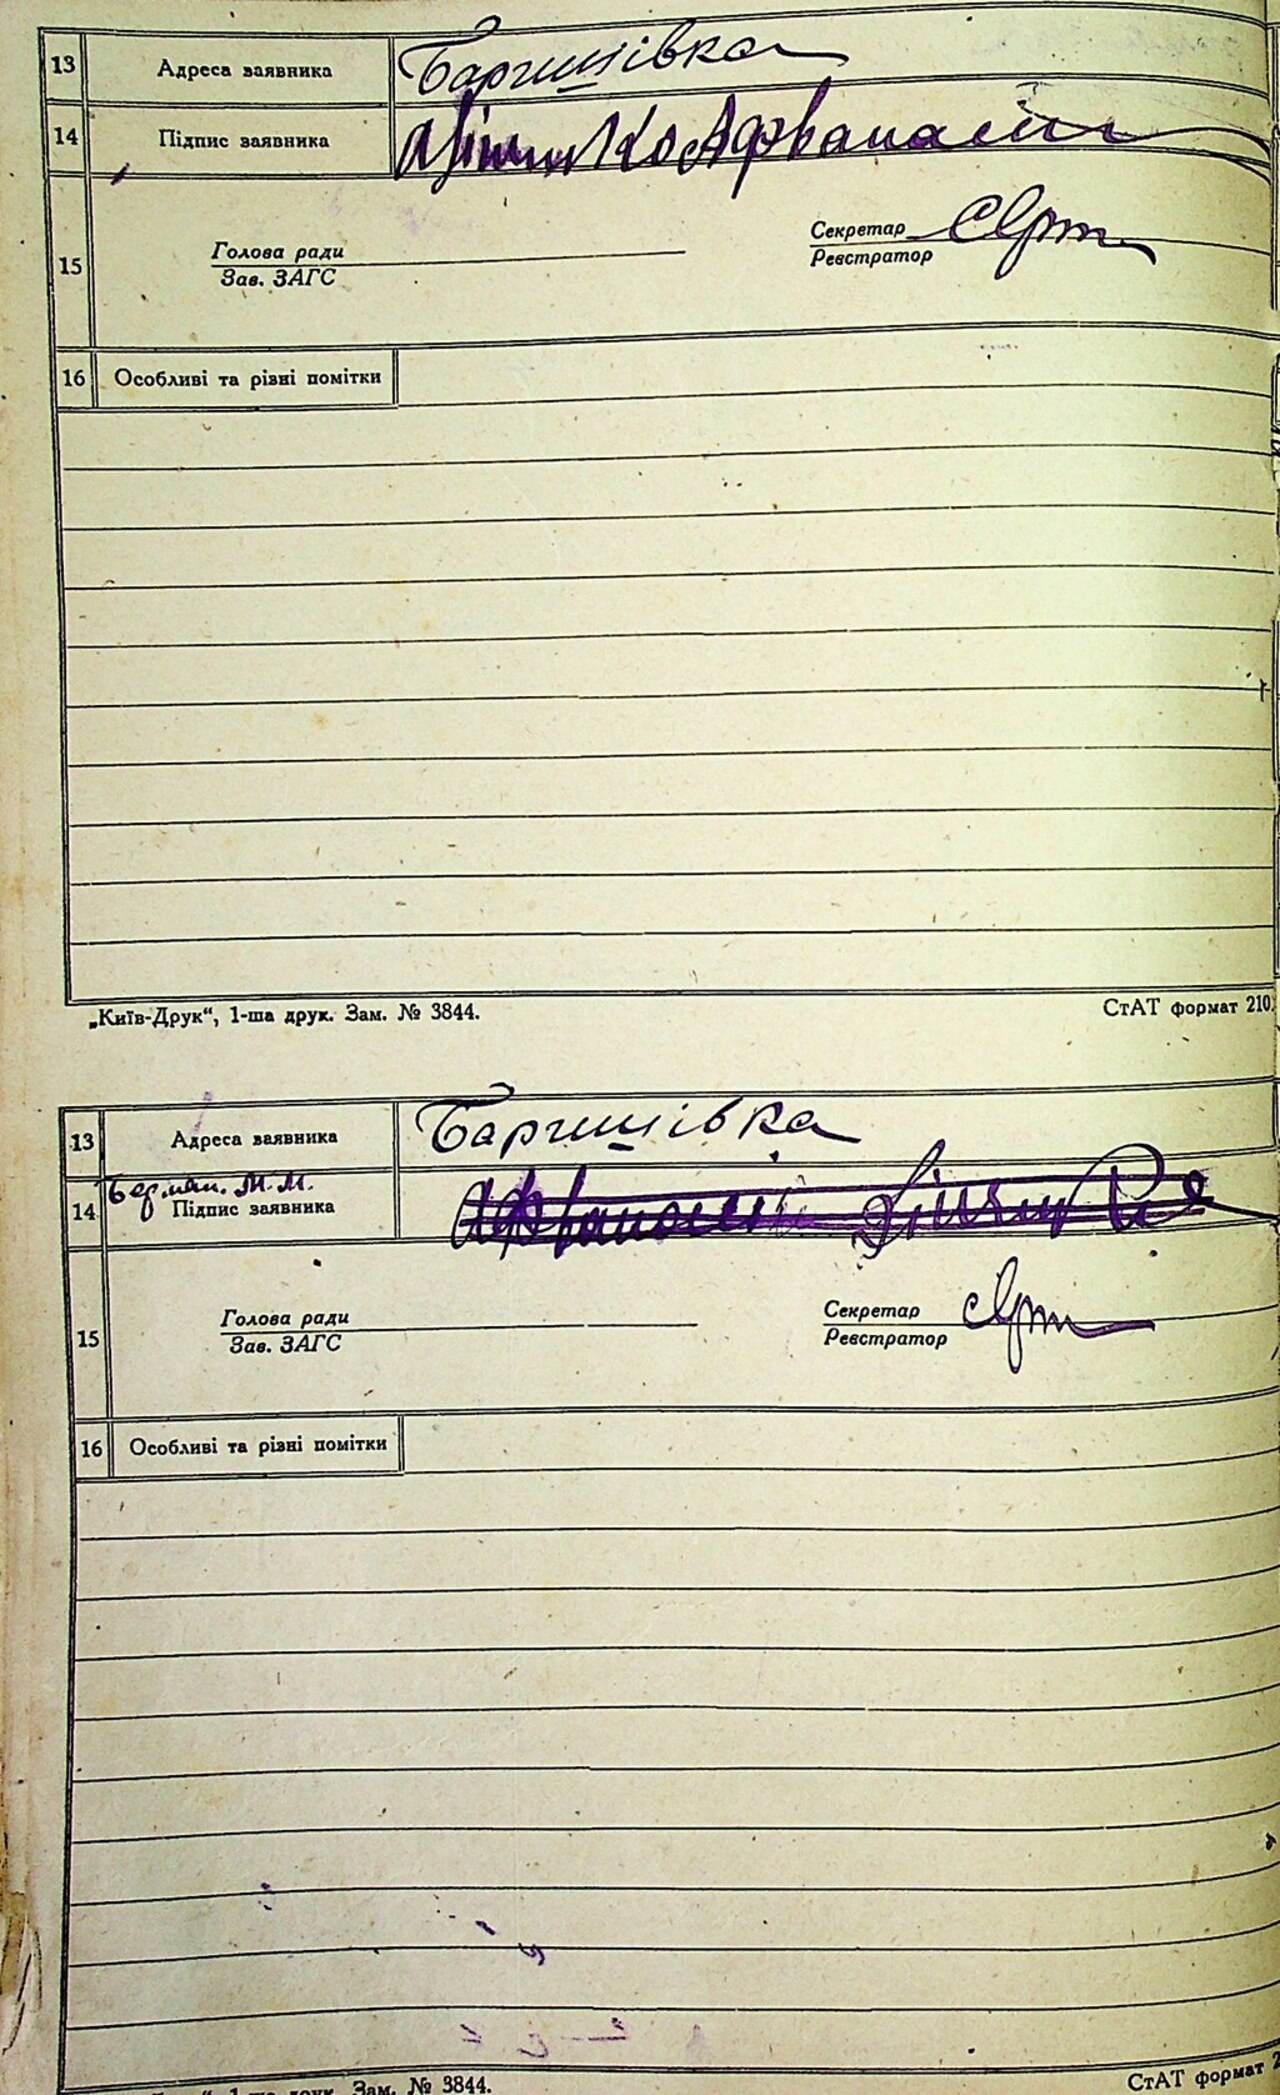 13 Адреса заявника Баришівка
14 Підпис заявника
Секретар
15 Голова ради Реєстратор
Зав. ЗАГС
16 Особливі та різні помітки
„Київ-Друк“, 1-ша друк. Зам. № 3844. СтАТ формат 210.
13 Адреса заявника Баришівка
Берман. М. М.
14 Підпис заявника
Секретар
15 Голова ради Реєстратор
Зав. ЗАГС
16 Особливі та різні помітки
1-ша друк. Зам. № 3844. СтАТ формат 2